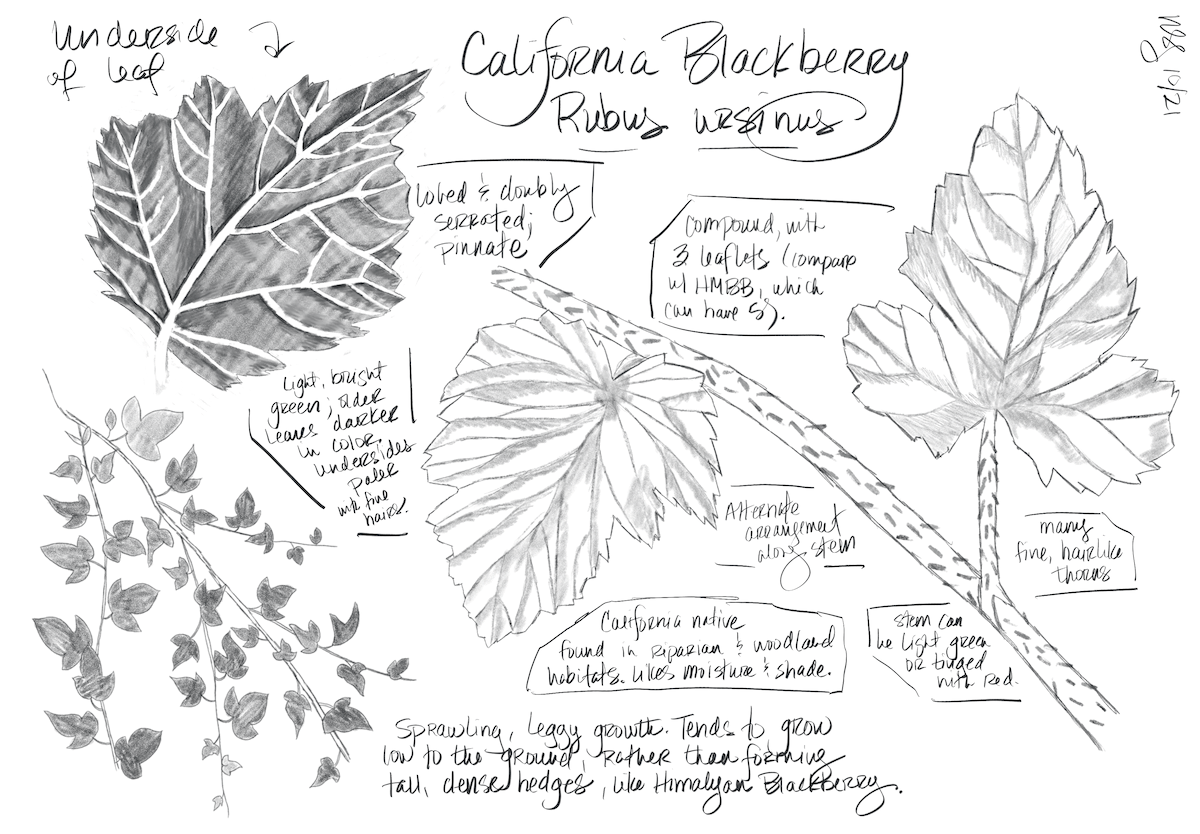 Underside
of leaf
California Blackberry
Rubus ursinus
10/21
lobed & doubly
serrated;
pinnate
compound, with
3 leaflets (compare
w/ HMBB, which
can have 5).
light, bright
green; older
leaves darker
in color.
Undersides
paler
with fine
hairs.
Alternate
arrangement
along stem
many
fine, hairlike
thorns
California native
found in riparian & woodland
habitats. Likes moisture & shade.
stem can
be light green
or tinged
with red.
Sprawling, leggy growth. Tends to grow
low to the ground, rather than forming
tall, dense hedges, like Himalyan Blackberry.